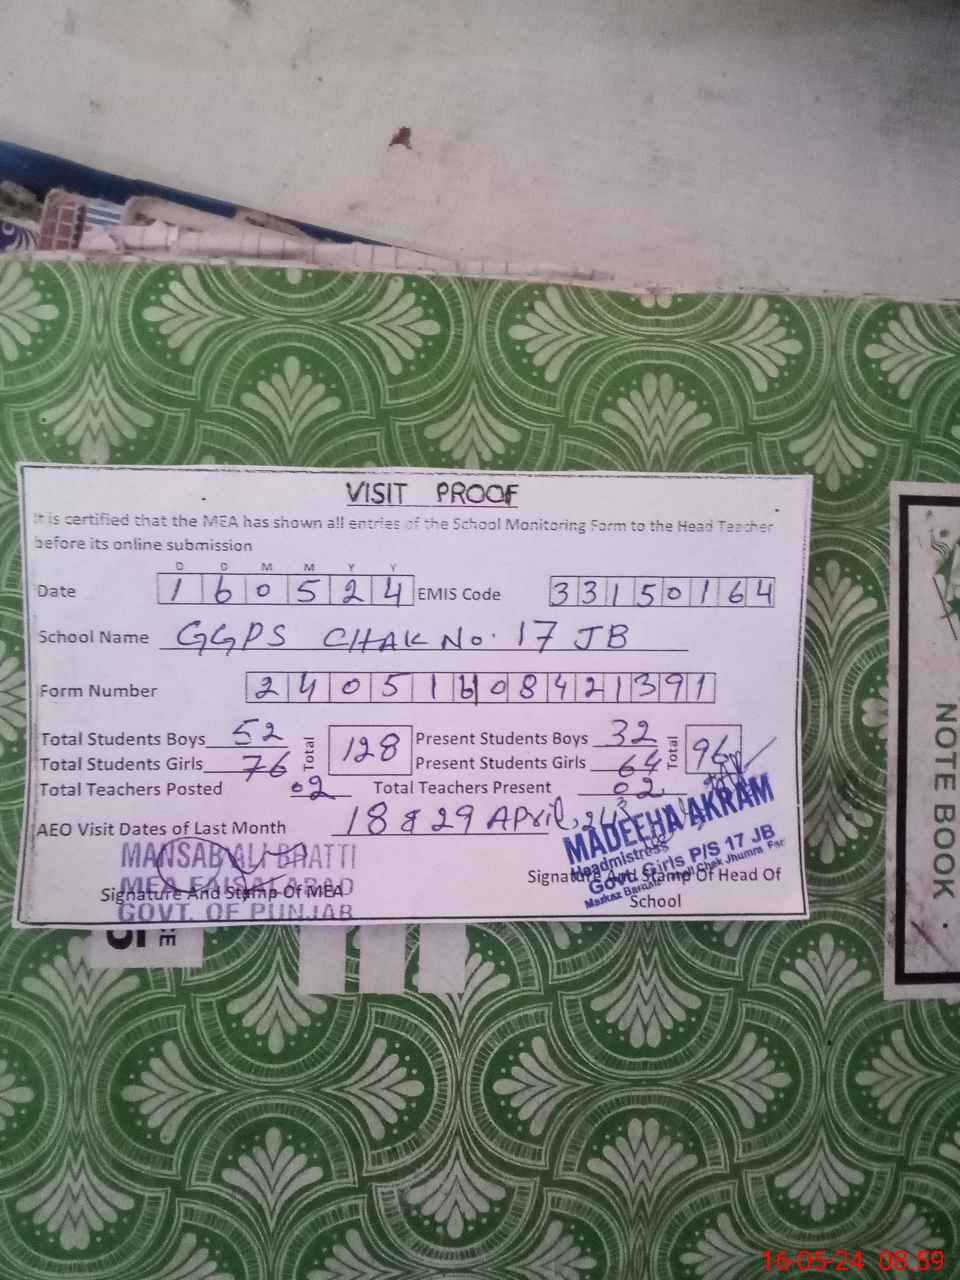 VISIT PROOF
It is certified that the MEA has shown all entries of the School Monitoring Form to the Head Teacher
before its online submission
D D M M Y Y
Date 1 6 0 5 2 4 EMIS Code 3 3 1 5 0 1 6 4
School Name GGPS CHAK No. 17 JB
Form Number 2 4 0 5 1 6 0 8 4 2 1 3 9 1
Total Students Boys 52 Total 128 Present Students Boys 32 Total 96
Total Students Girls 76 Present Students Girls 64
Total Teachers Posted 02 Total Teachers Present 02
AEO Visit Dates of Last Month 18 & 29 April,
MANSAB ALI BHATTI
MEA FAISALABAD
GOVT. OF PUNJAB
Signature And Stamp Of MEA
MADEEHA AKRAM
Headmistress
Govt. Girls P/S 17 JB
Markaz Chak Jhumra Fsr
Signature And Stamp Of Head Of
School
NOTE BOOK
16-05-24 08.59